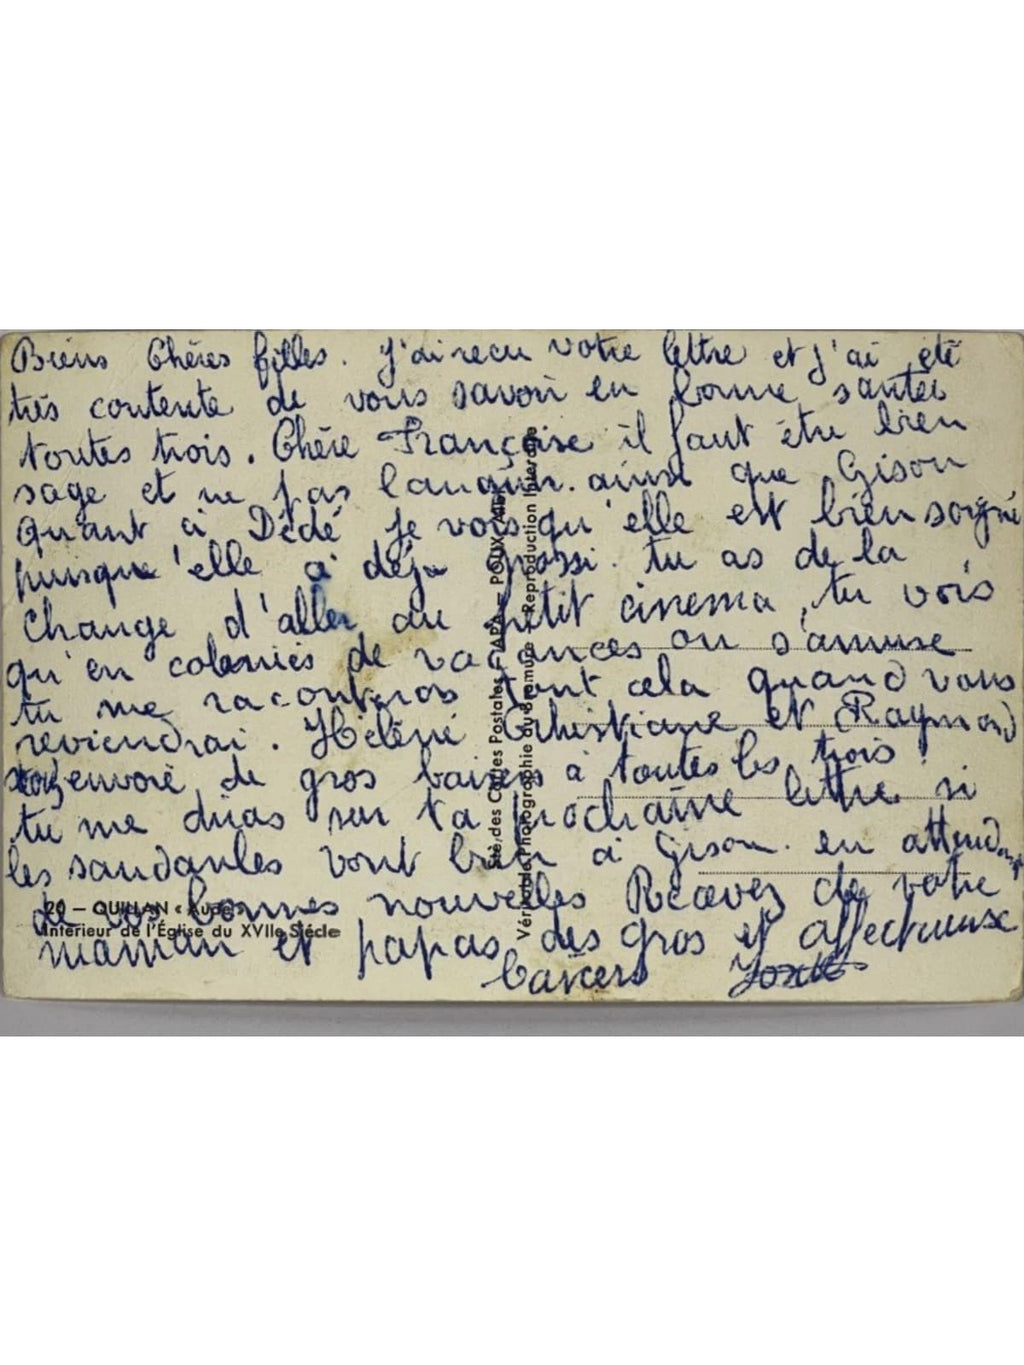 Biens Chères filles. J'ai recu votre lettre et j'ai été
très contente de vous savoir en bonne santée
toutes trois. Chère Françoise il faut être bien
sage et ne pas languir. ainsi que Gison
quant à Dédé je vois qu'elle est bien soigné
puisque'elle à déjà grossi. tu as de la
change d'aller au petit cinema, tu vois
qu'en colonies de vacances on s'amuse
tu me raconteras tout cela quand vous
reviendrai. Hélène Christiane et Raymond
envoie de gros baisers à toutes les trois
tu me diras sur ta prochaine lettre si
les sandales vont bien à Gison. en attendant
de vos bonnes nouvelles Recevez de votre
maman et papas des gros et affectueuse
baisers
20 — QUILLAN « Aude »
Intérieur de l'Église du XVIIe Siècle
Sté des Cartes Postales « APA — POUX
Véritable Photographie au Bromure - Reproduction Interdite